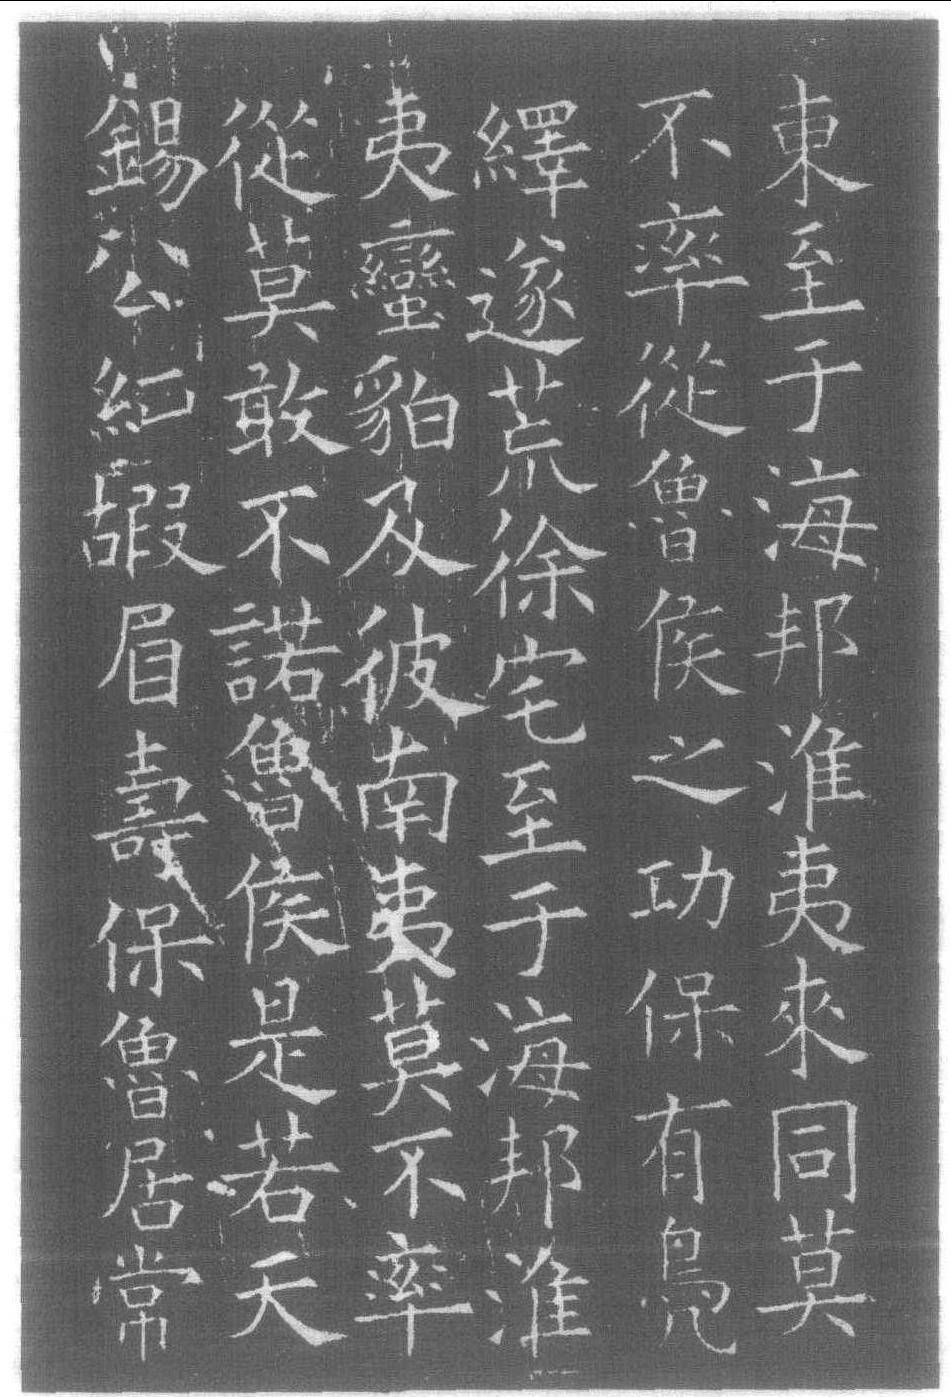 東至于海邦淮夷來同莫
不率從魯侯之功保有鳧
繹遂荒徐宅至于海邦淮
夷蠻貊及彼南夷莫不率
從莫敢不諾魯侯是若天
錫公純嘏眉壽保魯居常